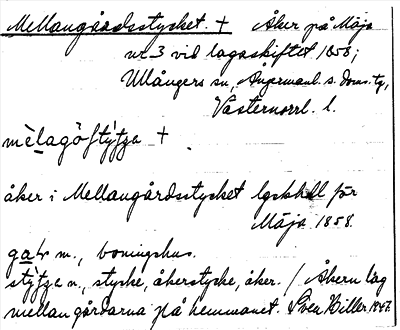 Mellangårdsstycket. + Åker på Mäja
nr 3 vid lagaskiftet 1858;
Ullångers sn, Ångermanl. s. doms. tg,
Västernorrl. l.
åker i Mellangårdsstycket lgskll för
Mäja 1858.
m., boningshus.
n., stycke, åkerstycke, åker. / Åkern låg
mellan gårdarna på hemmanet. Sven Biller, 1947.